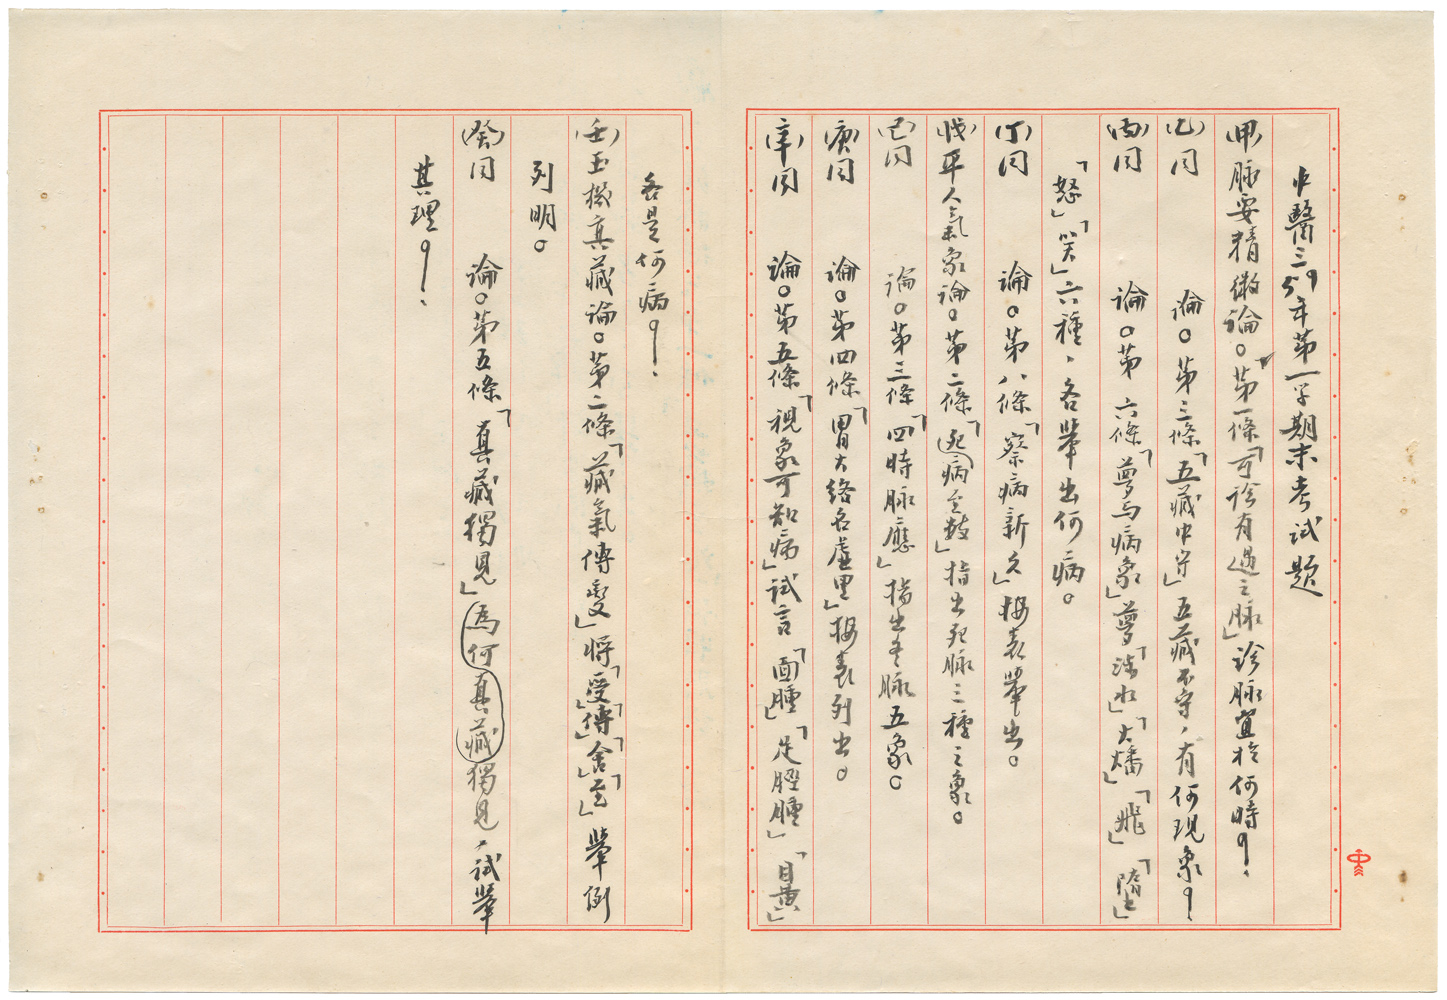 中醫三59年第一學期末考試題
(甲)脉要精微論。第一條「可診有過之脉」診脉宜於何時?
(乙)同　論。第三條「五藏中守」五藏不守,有何現象?
(丙)同　論。第六條「夢与病象」夢「涉水」「大燔」「飛」「墮」
「怒」「笑」六種,各舉出何病。
(丁)同　論。第八條「察病新久」按表舉出。
(戊)平人氣象論。第二條「死病至數」指出死脉三種之象。
(己)同　論。第三條「四時脉應」指出冬脉五象。
(庚)同　論。第四條「胃大絡名虛里」按表列出。
(辛)同　論。第五條「視象可知病」試言「面腫」「足脛腫」「目黃」
各是何病?
(壬)玉機真藏論。第二條「藏氣傳變」將「受」「傳」「舍」「至」舉例
列明。
(癸)同　論。第五條「真藏獨見」(為何)(真藏)獨見,試舉
其理?